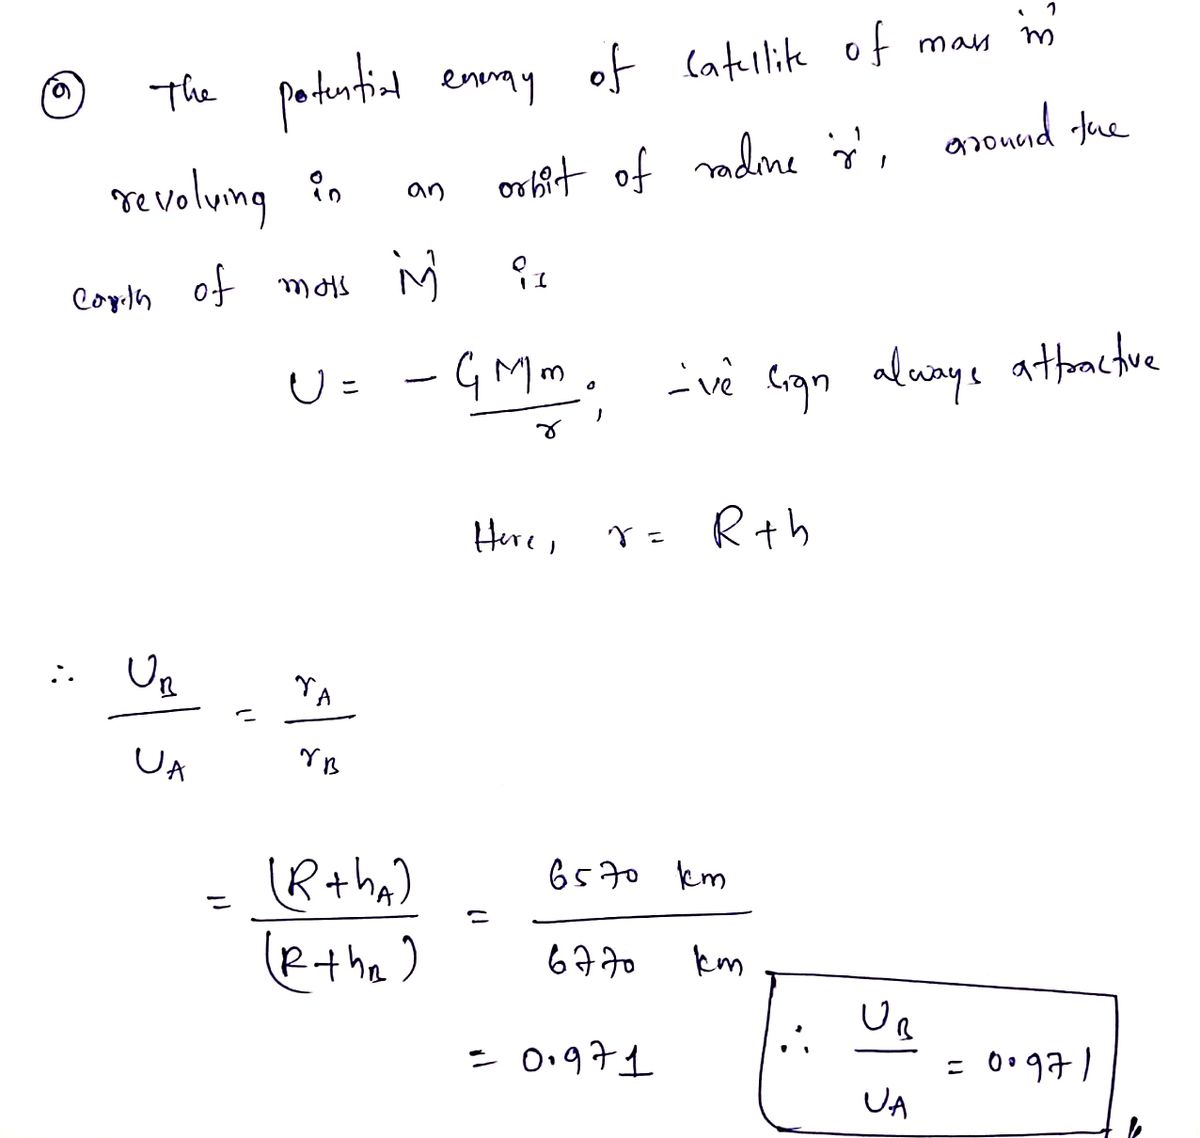 (a) The potential energy of satellite of mass 'm'
revolving in an orbit of radius 'r', around the
earth of mass 'M' is
U = - GMm / r ; -ive sign always attractive
Here, r = R + h
∴ U_B / U_A = r_A / r_B
= (R + h_A) / (R + h_B) = 6570 km / 6770 km
= 0.971
∴ U_B / U_A = 0.971